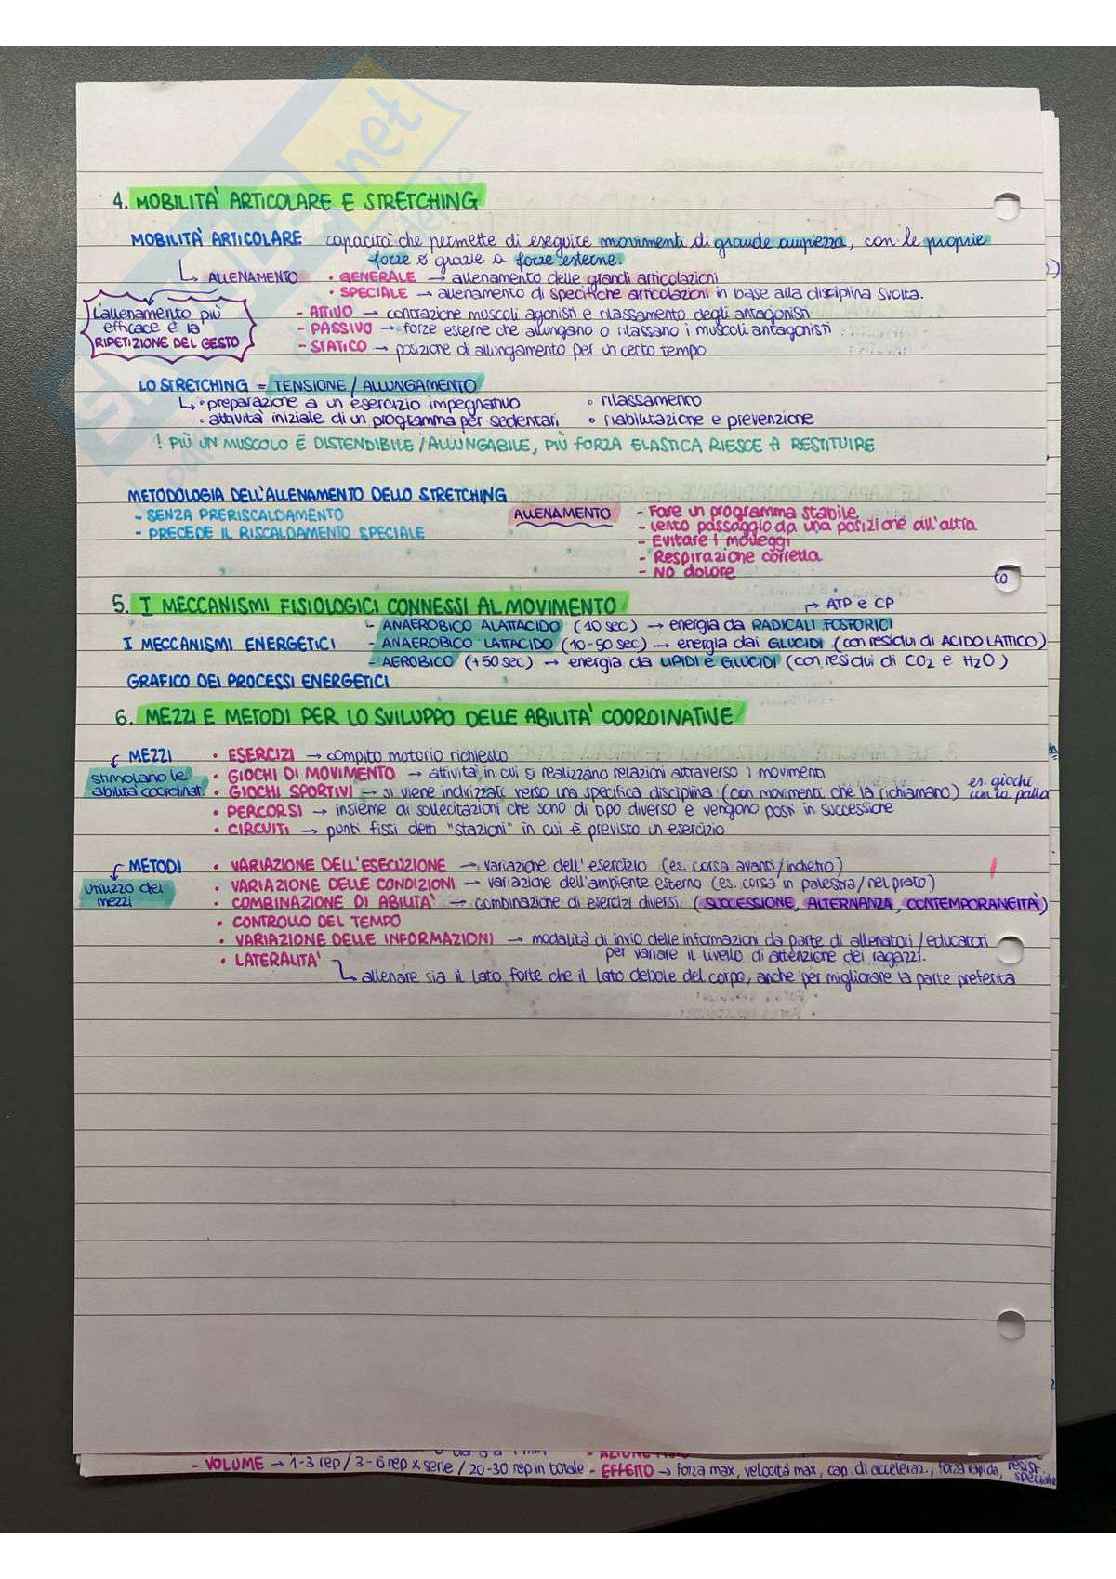 4. MOBILITA' ARTICOLARE E STRETCHING
MOBILITA' ARTICOLARE capacità che permette di eseguire movimenti di grande ampiezza, con le proprie
forze o grazie a forze esterne.
↳ ALLENAMENTO • GENERALE → allenamento delle grandi articolazioni
• SPECIALE → allenamento di specifiche articolazioni in base alla disciplina svolta.
L'allenamento più
efficace è la
RIPETIZIONE DEL GESTO
- ATTIVO → contrazione muscoli agonisti e rilassamento degli antagonisti
- PASSIVO → forze esterne che allungano o rilassano i muscoli antagonisti
- STATICO → posizione di allungamento per un certo tempo
LO STRETCHING = TENSIONE / ALLUNGAMENTO
↳ • preparazione a un esercizio impegnativo • rilassamento
• attività iniziale di un programma per sedentari • riabilitazione e prevenzione
! PIÙ UN MUSCOLO È DISTENDIBILE / ALLUNGABILE, PIÙ FORZA ELASTICA RIESCE A RESTITUIRE
METODOLOGIA DELL'ALLENAMENTO DELLO STRETCHING
- SENZA PRERISCALDAMENTO
- PRECEDE IL RISCALDAMENTO SPECIALE
ALLENAMENTO - Fare un programma stabile
- Lento passaggio da una posizione all'altra
- Evitare i molleggi
- Respirazione corretta
- NO dolore
to
5. I MECCANISMI FISIOLOGICI CONNESSI AL MOVIMENTO
→ ATP e CP
I MECCANISMI ENERGETICI - ANAEROBICO ALATTACIDO (10 sec) → energia da RADICALI FOSFORICI
- ANAEROBICO LATTACIDO (10-50 sec) → energia dai GLUCIDI (con residui di ACIDO LATTICO)
- AEROBICO (+50 sec) → energia da LIPIDI E GLUCIDI (con residui di CO2 e H2O)
GRAFICO DEI PROCESSI ENERGETICI
6. MEZZI E METODI PER LO SVILUPPO DELLE ABILITA' COORDINATIVE
MEZZI • ESERCIZI → compito motorio richiesto
stimolano le
abilità coordinat.
• GIOCHI DI MOVIMENTO → attività in cui si realizzano relazioni attraverso i movimento
• GIOCHI SPORTIVI → si viene indirizzati verso una specifica disciplina (con movimenti che la richiamano) es. giochi
con la palla
• PERCORSI → insieme di sollecitazioni che sono di tipo diverso e vengono posti in successione
• CIRCUITI → punti fissi detti "stazioni" in cui è previsto un esercizio
METODI • VARIAZIONE DELL'ESECUZIONE → variazione dell'esercizio (es. corsa avanti/indietro)
utilizzo dei
mezzi
• VARIAZIONE DELLE CONDIZIONI → variazione dell'ambiente esterno (es. corsa in palestra/nel prato)
• COMBINAZIONE DI ABILITA' → combinazione di esercizi diversi (SUCCESSIONE, ALTERNANZA, CONTEMPORANEITÀ)
• CONTROLLO DEL TEMPO
• VARIAZIONE DELLE INFORMAZIONI → modalità di invio delle informazioni da parte di allenatori/educatori
per variare il livello di attenzione dei ragazzi.
• LATERALITA'
↳ allenare sia il lato forte che il lato debole del corpo, anche per migliorare la parte preferita
- VOLUME → 1-3 rep / 3-6 rep x serie / 20-30 rep in totale - EFFETTO → forza max, velocità max, cap. di acceleraz., forza rapida, resist.
speciale